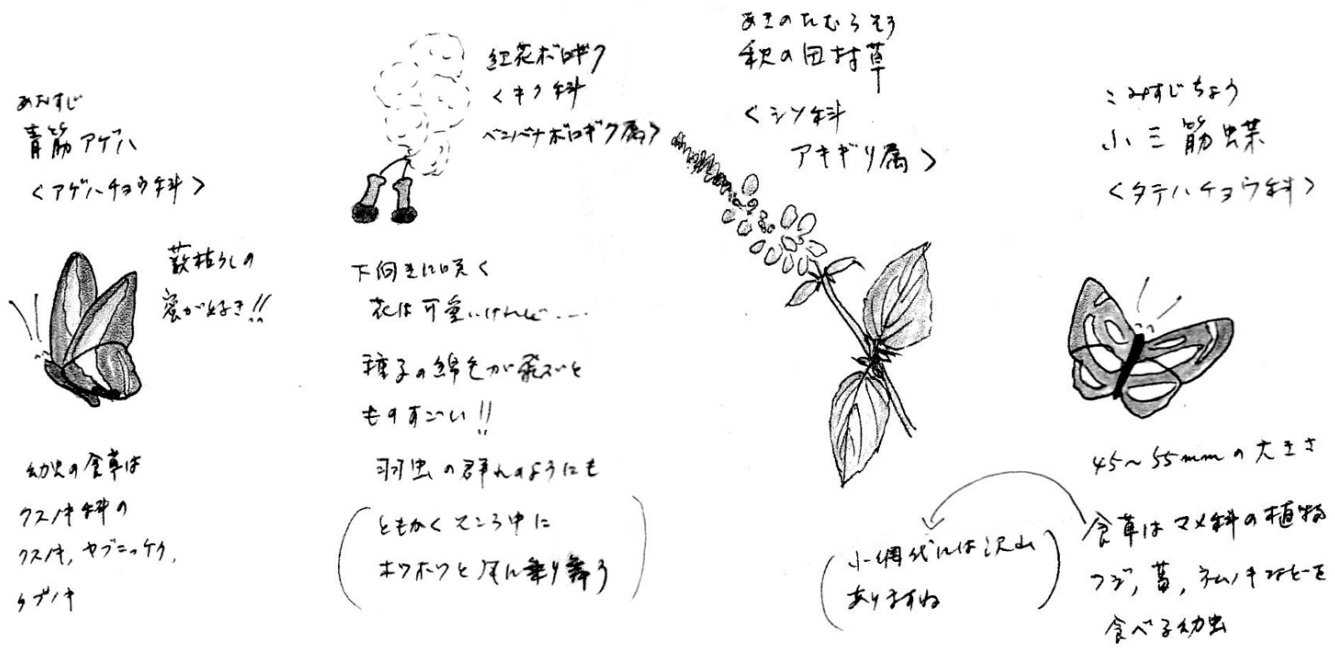 あおすじ
青筋アゲハ
<アゲハチョウ科>
藪枯らしの
蜜が好き!!
幼虫の食草は
クスノキ科の
クスノキ, ヤブニッケイ,
タブノキ
紅花ボロギク
<キク科
ベニバナボロギク属>
下向きに咲く
花は可愛いけれど...
種子の綿毛が飛ぶと
ものすごい!!
羽虫の群れのようにも
(ともかくそこら中に
ホワホワと風に乗り舞う)
あきのたむらそう
秋の田村草
<シソ科
アキギリ属>
こみすじちょう
小三筋蝶
<タテハチョウ科>
45~55mmの大きさ
食草はマメ科の植物
フジ, 葛, ネムノキなどを
食べる幼虫
(小網代には沢山
ありますね)